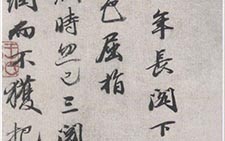 年長閣下
色屈指
時忽已三閱
而不獲把